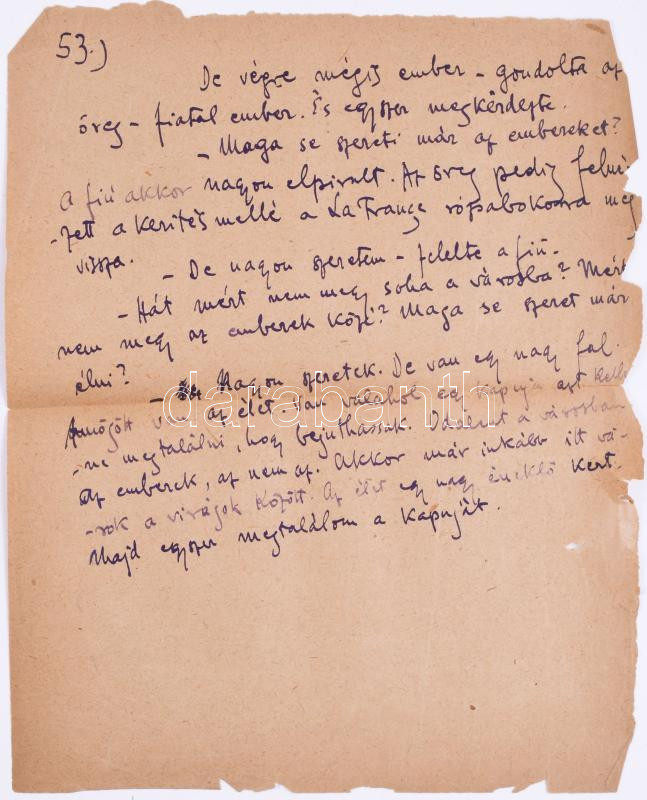 53.)
De végre mégis ember - gondolta az
öreg - fiatal ember. És egyszer megkérdezte.
- Maga se szereti már az embereket?
A fiú akkor nagyon elpirult. Az öreg pedig felné-
-zett a kerités mellé a La France rózsabokorra meg
vissza.
- De nagyon szeretem - felelte a fiú.
- Hát mért nem megy soha a városba? Mért
nem megy az emberek közé? Maga se szeret már
élni?
- Nagyon szeretek. De van egy nagy fal.
amögött van az élet. Van valahol egy kapuja azt kelle-
-ne megtalálni, hogy bejuthassak. Odalent a városban
az emberek, az nem az. Akkor már inkább itt vá-
-rok a virágok között. Az élet egy nagy éneklő kert.
Majd egyszer megtalálom a kapuját.
darabanth